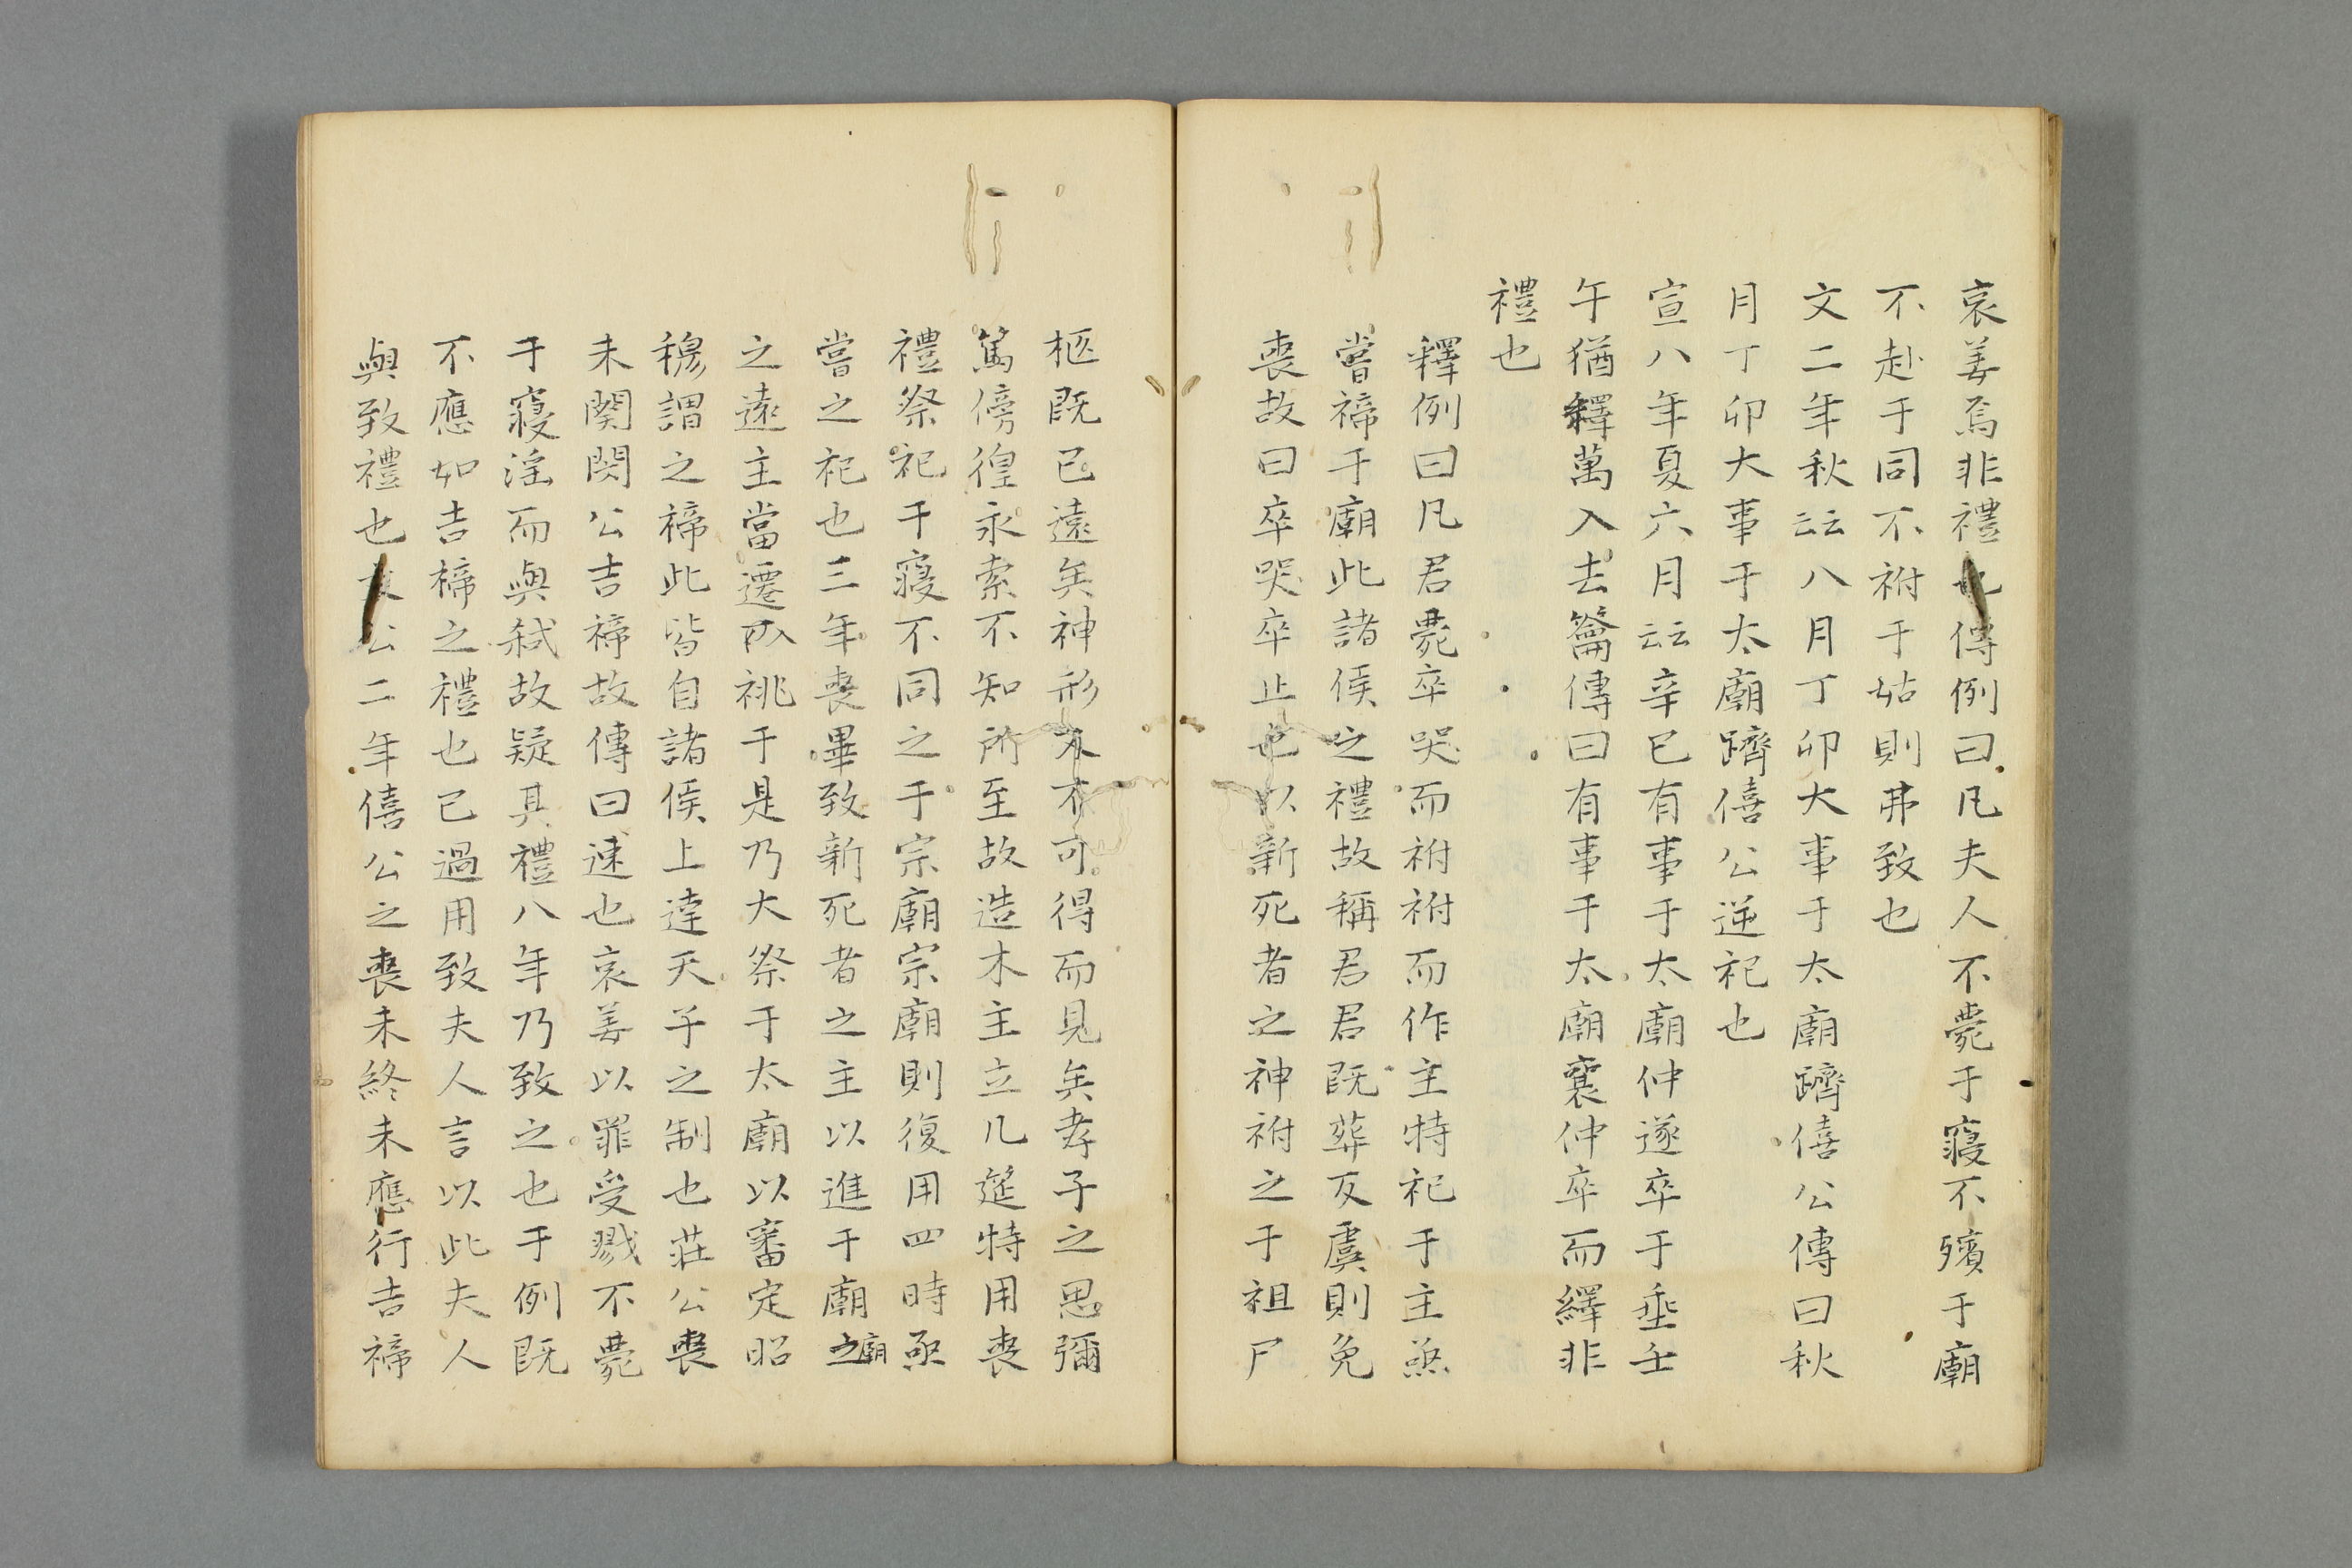 哀姜焉非禮也傳例曰凡夫人不薨于寢不殯于廟
不赴于同不祔于姑則弗致也
文二年秋云云八月丁卯大事于太廟躋僖公傳曰秋
月丁卯大事于太廟躋僖公逆祀也
宣八年夏六月云云辛巳有事于太廟仲遂卒于垂壬
午猶繹萬入去籥傳曰有事于太廟襄仲卒而繹非
禮也
釋例曰凡君薨卒哭而祔祔而作主特祀于主烝
嘗禘于廟此諸侯之禮故稱君君既葬反虞則免
喪故曰卒哭卒止也以新死者之神祔之于祖尸
柩既已遠矣神形又不可得而見矣孝子之思彌
篤傍徨求索不知所至故造木主立几筵特用喪
禮祭祀于寢不同之于宗廟宗廟則復用四時烝
嘗之祀也三年喪畢致新死者之主以進于廟廟之
之遠主當遷入祧于是乃大祭于太廟以審定昭
穆謂之禘此皆自諸侯上達天子之制也莊公喪
未闋閔公吉禘故傳曰速也哀姜以罪受戮不薨
于寢淫而與弒故疑其禮八年乃致之也于例既
不應如吉禘之禮也已過用致夫人言以此夫人
與致禮也文公二年僖公之喪未終未應行吉禘